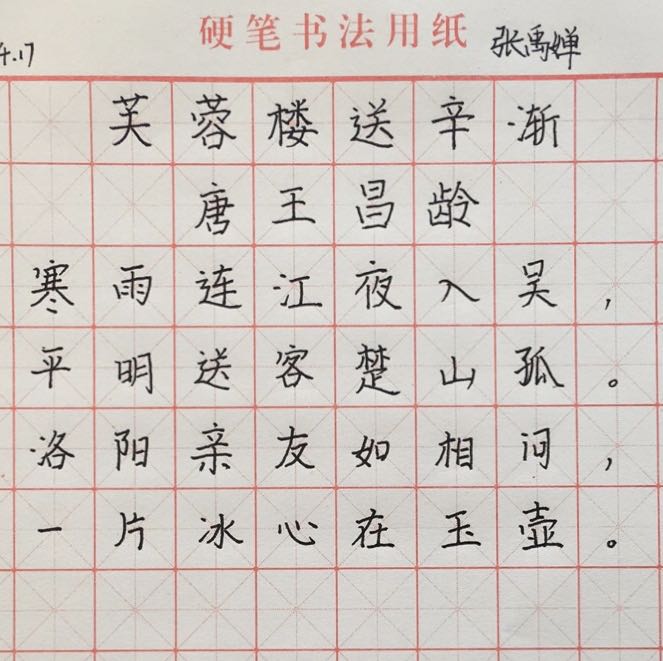 硬笔书法用纸
4.17 张禹婵
芙蓉楼送辛渐
唐王昌龄
寒雨连江夜入吴，
平明送客楚山孤。
洛阳亲友如相问，
一片冰心在玉壶。